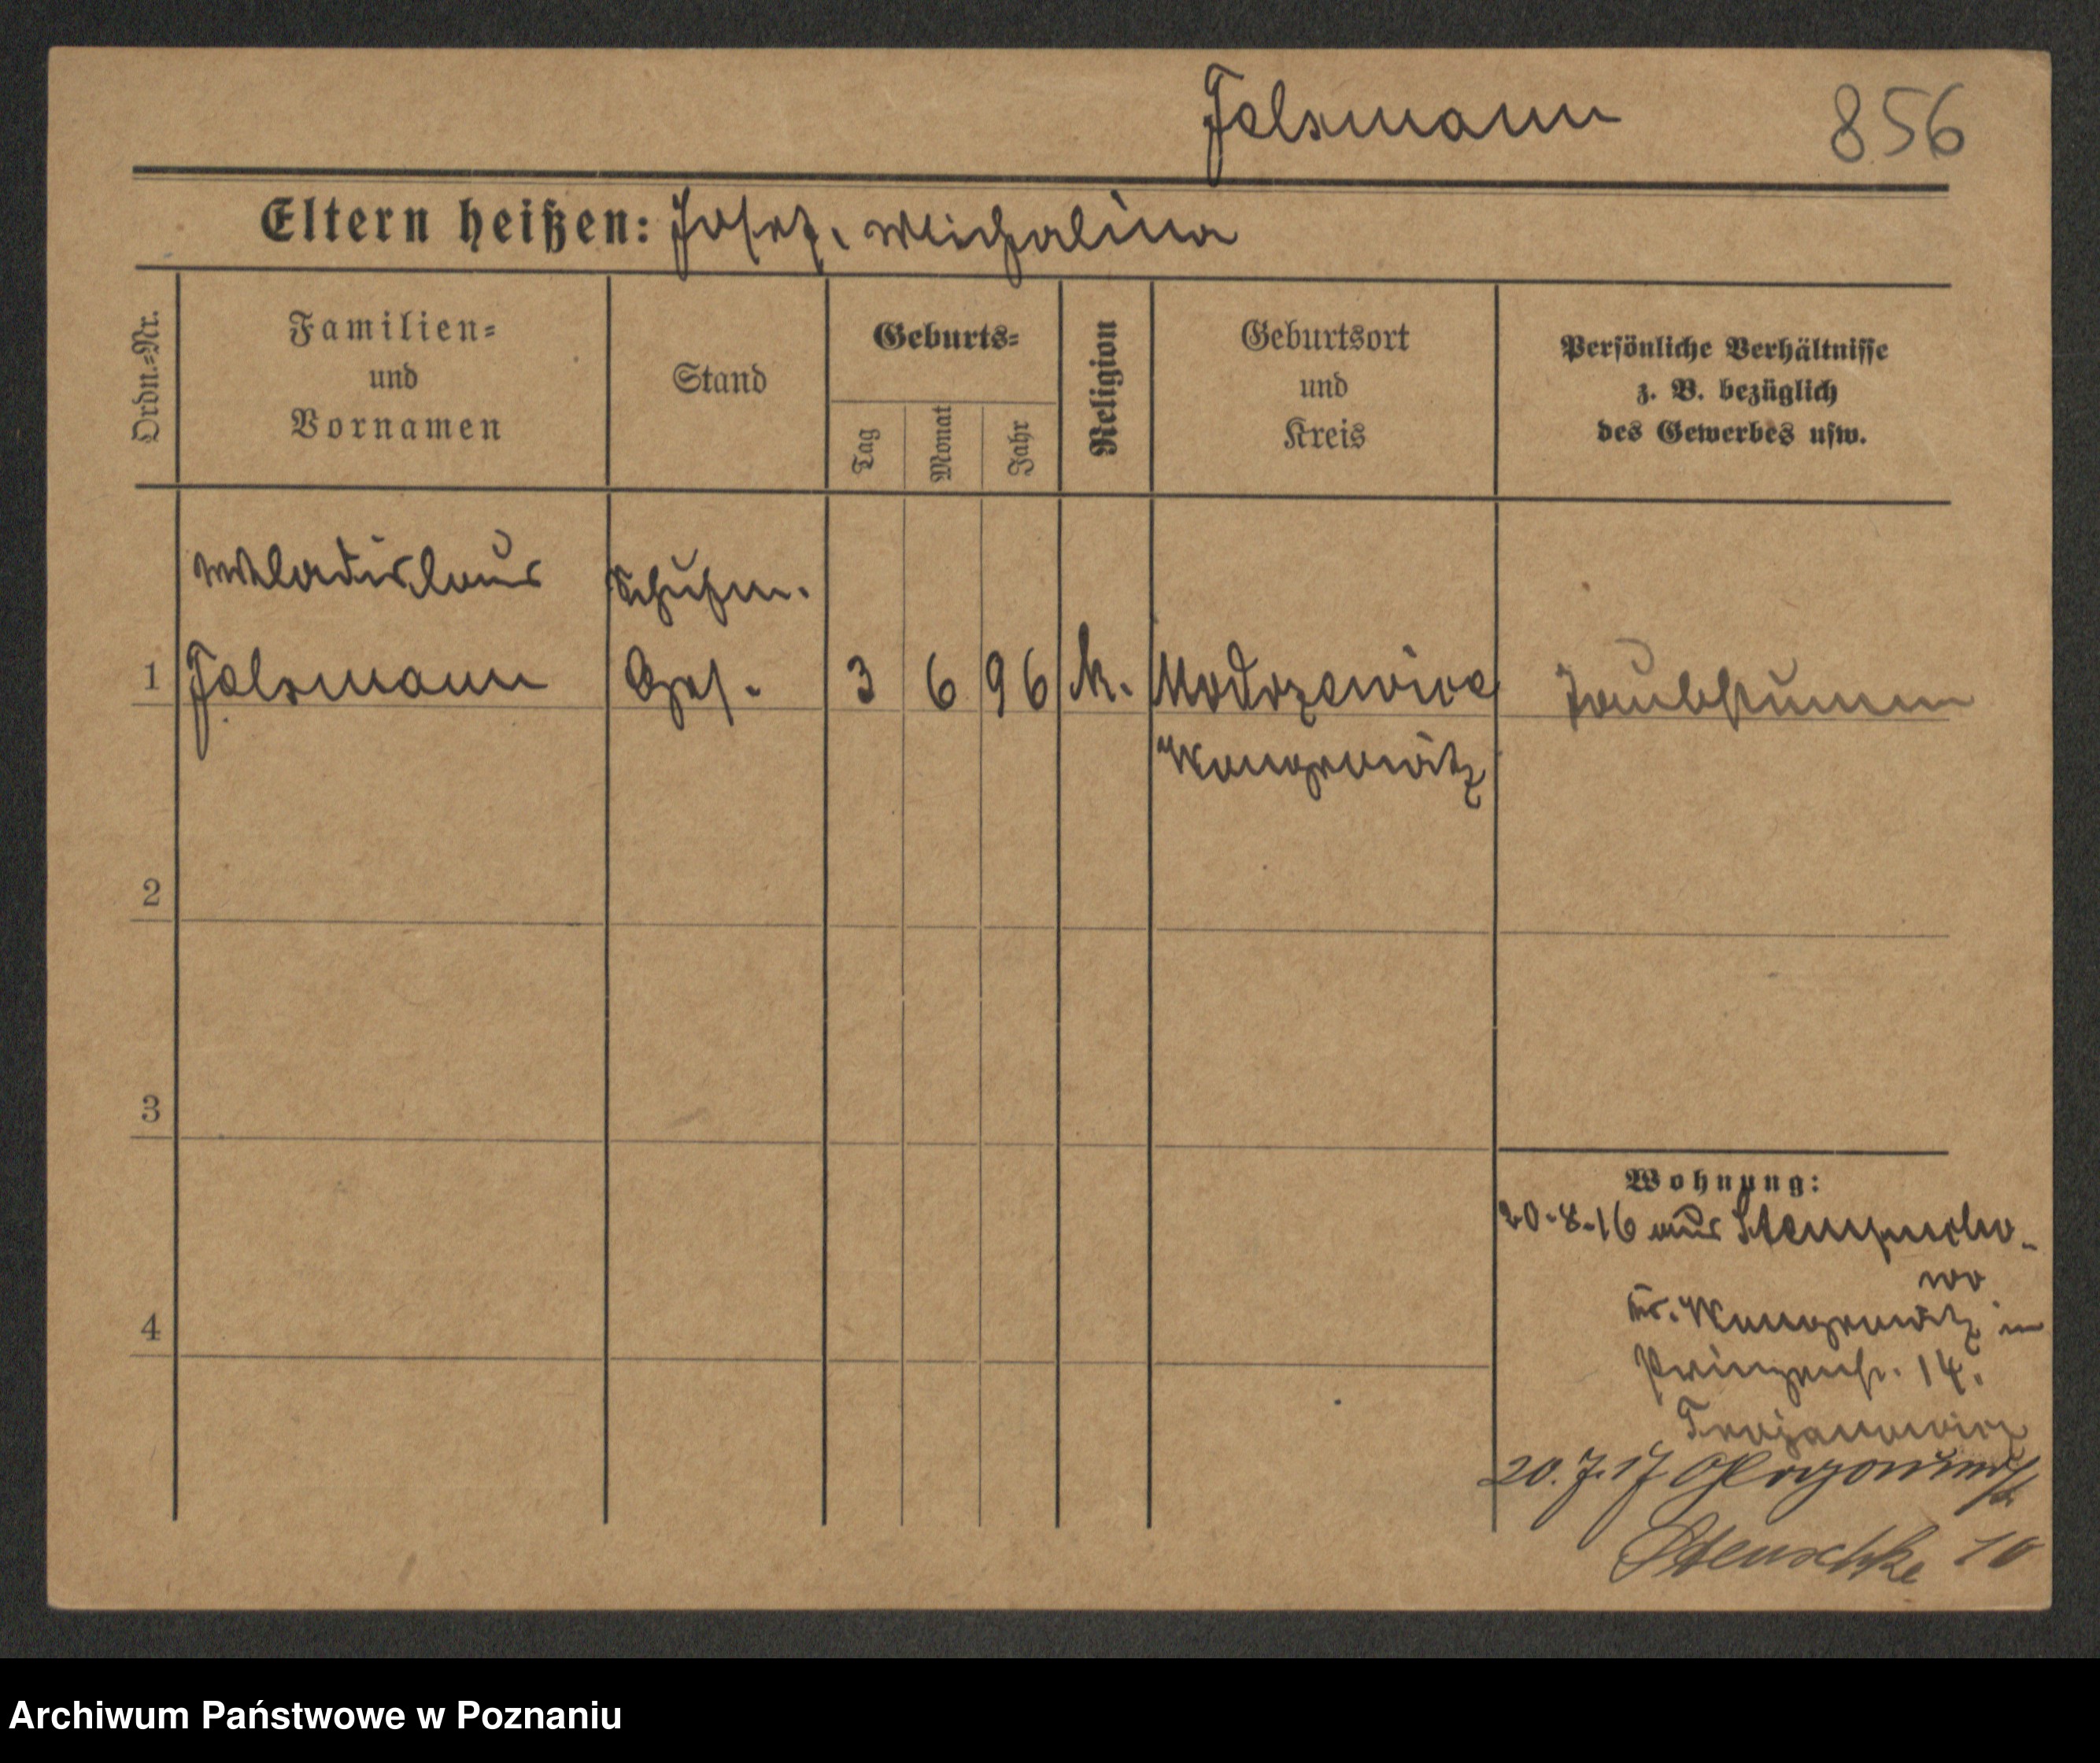 Falsmann 856
Eltern heißen: Josef, Michalina
Ordn.=Nr.
Familien=
und
Vornamen
Stand
Geburts=
Tag
Monat
Jahr
Religion
Geburtsort
und
Kreis
Persönliche Verhältnisse
z. B. bezüglich
des Gewerbes usw.
Wladislaus Schuhm.
1 Falsmann Ges. 3 6 96 k. Modrzewice Taubstumm
Wongrowitz
2
3
4
Wohnung:
20.8.16 aus
wo
Kr. Wongrowitz in
Prinzenstr. 14.
Trojanowicz
20.7.17 Glogauerstr
Stenschke 10
Archiwum Państwowe w Poznaniu